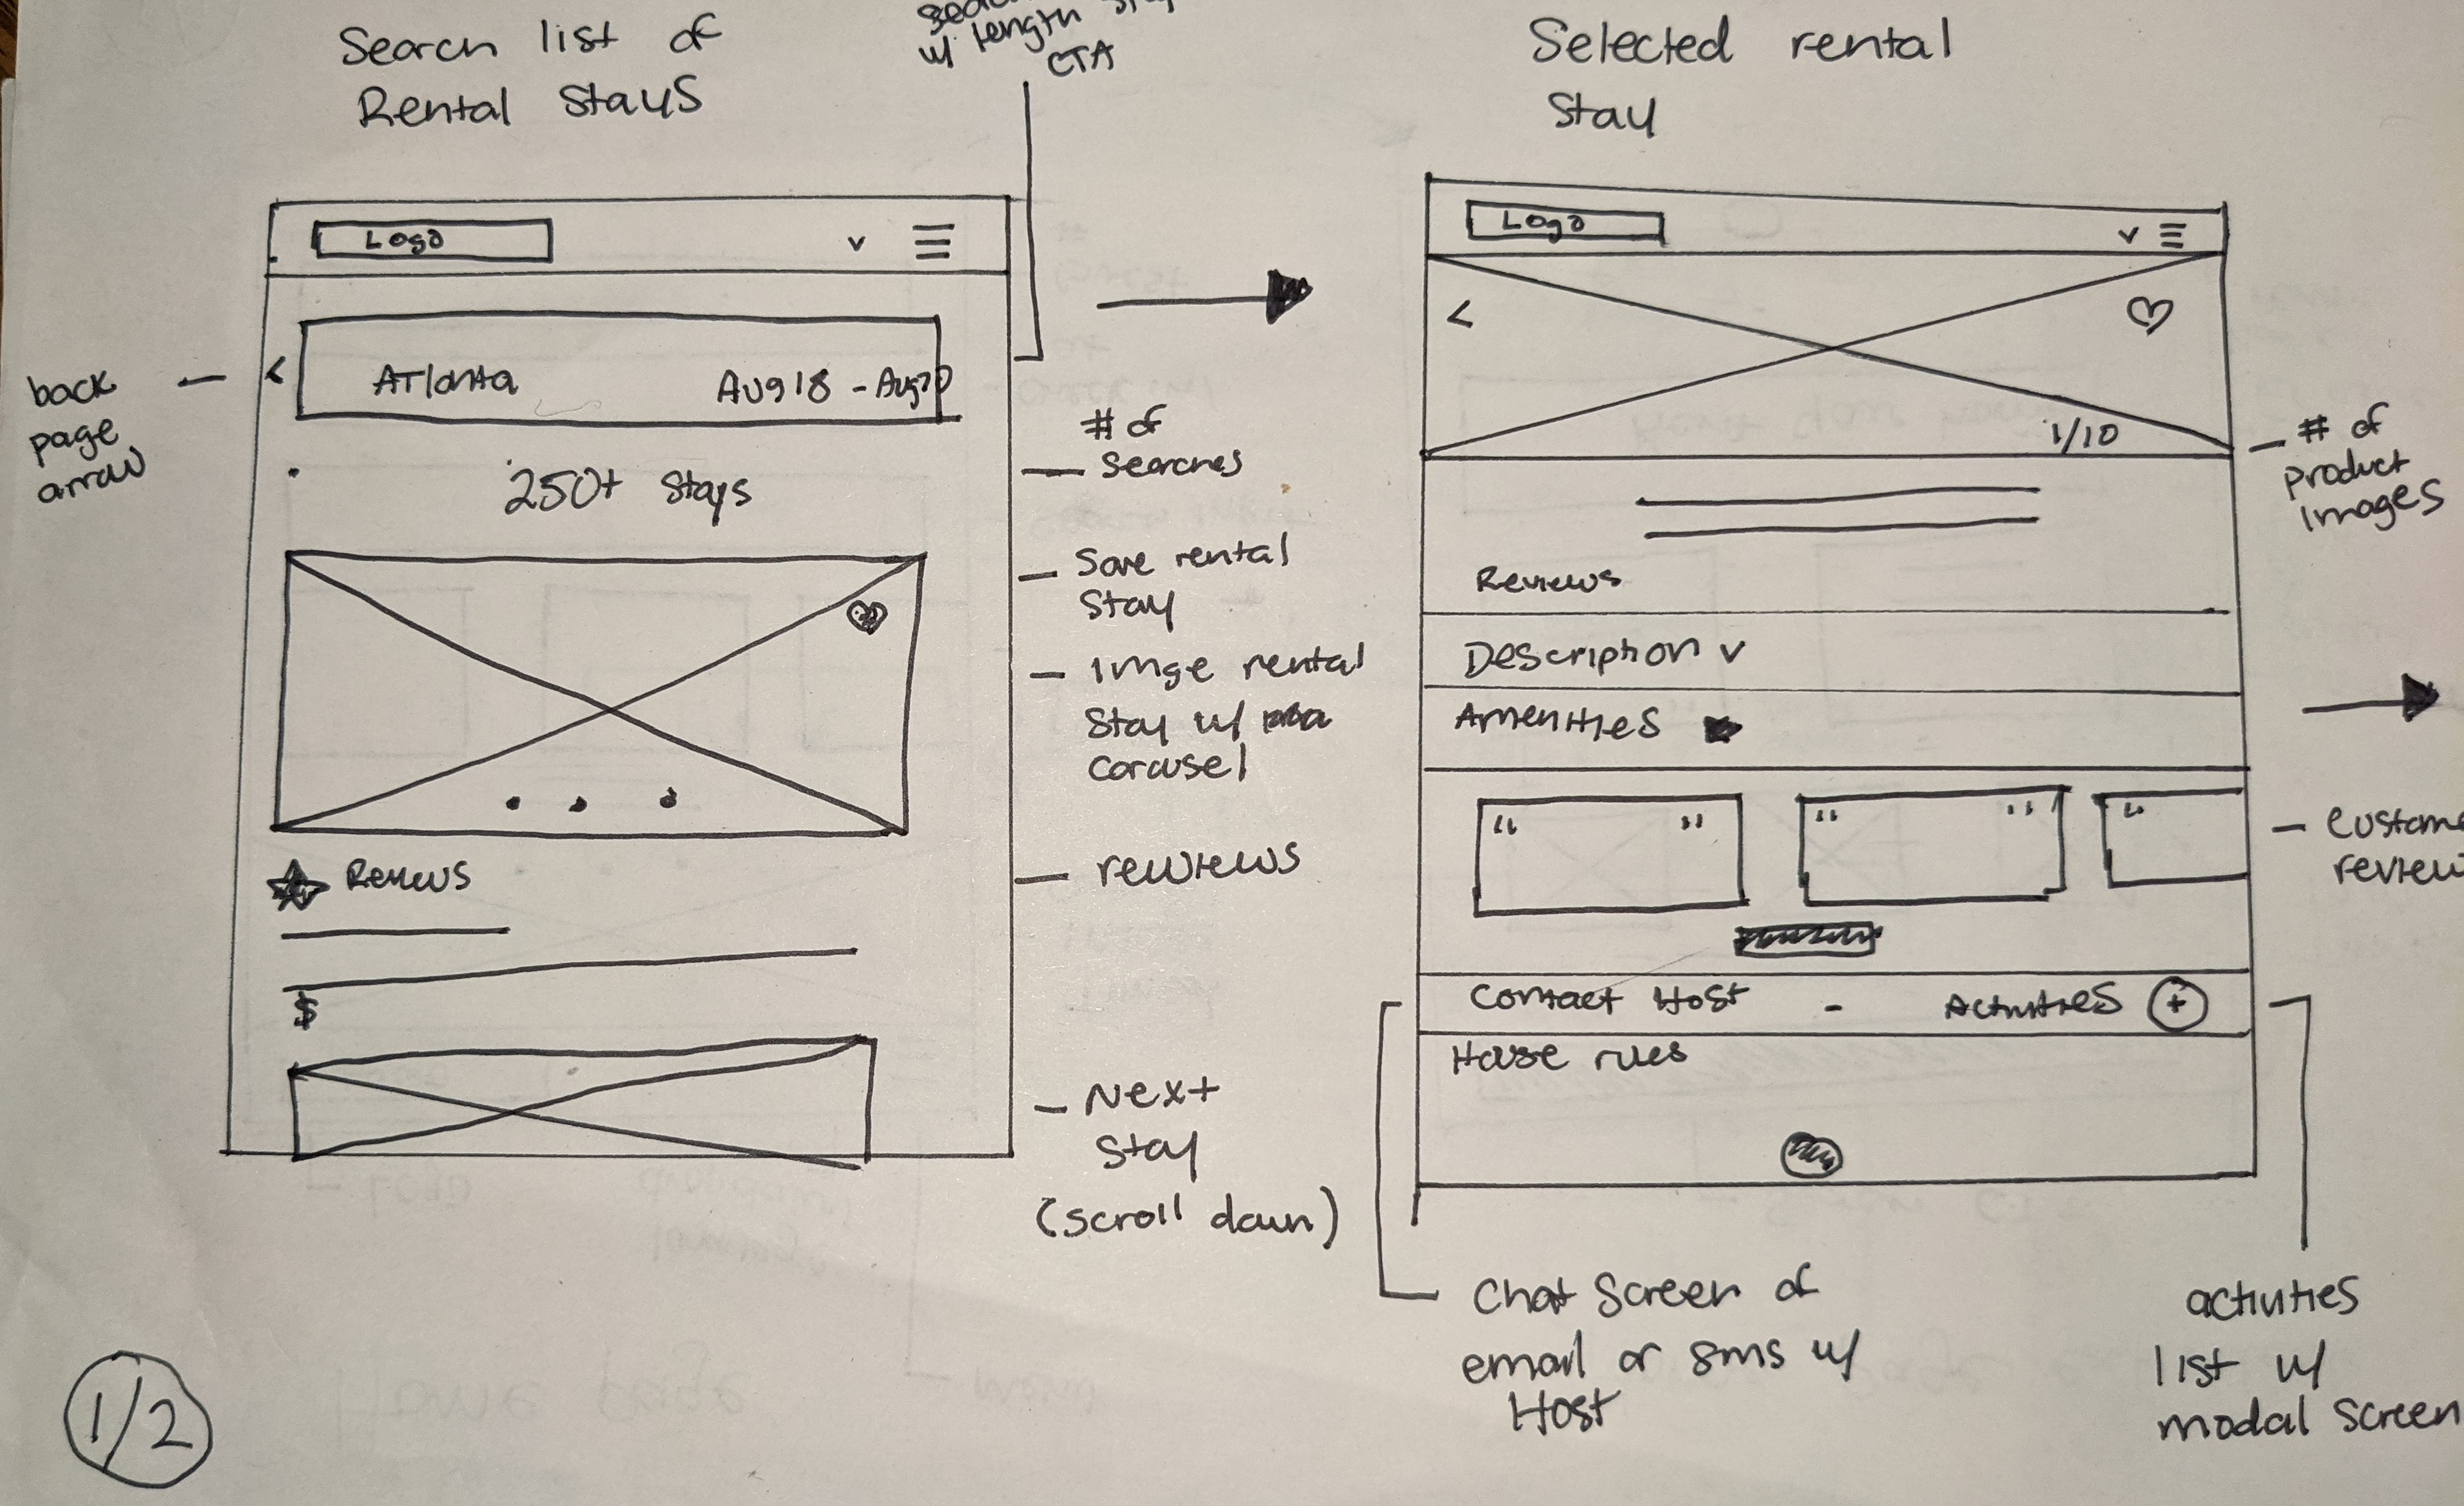 Search list of
Rental Stays
w/ length
CTA
Logo
v
back
page
arrow
<
Atlanta Aug 18 - Aug 20
250+ Stays
# of
searches
Save rental
stay
Imge rental
stay w/
carousel
Reviews
rewiews
$
Next
stay
(scroll down)
1/2
Selected rental
stay
Logo
v
<
1/10
# of
product
images
Reviews
Description v
Amenities
“ ”
“ ”
“
review
Contact Host - Activities +
House rules
Chat screen of
email or sms w/
Host
activities
list w/
modal screen